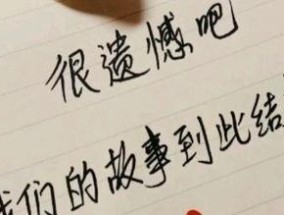 很遗憾吧
我们的故事到此结